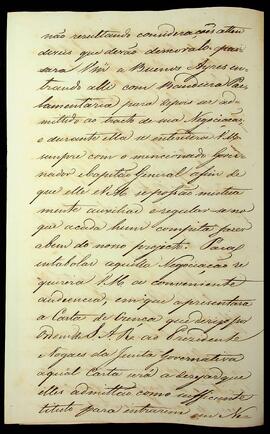 não resultando consideraçoẽs atten
diveis que devão demoralo, pas-
sará Vm. a Buenos Ayres en-
trando alli com Bandeira Par-
lamentaria para depois ser ad-
mittido ao tracto de sua Negociação,
e durante ella se entenderá V.M.
sempre com o mencionado Gover-
nador e Capitão General afim de
que elle e V.M. se possão mutua
mente auxiliar e regular-se no
que a cada hum compita fazer
a bem do nosso projecto. Para
entabolar aquella Negociação re-
quererá V.M. a conveniente
audiencia, em que apresentará
a Carta de Crença que dirijo por
Ordem de S. A. R. ao Prezidente
e Vogaes da Junta Governativa
a qual Carta será a desejar que
elles admittão como sufficiente
titulo para entrarem em Ne-